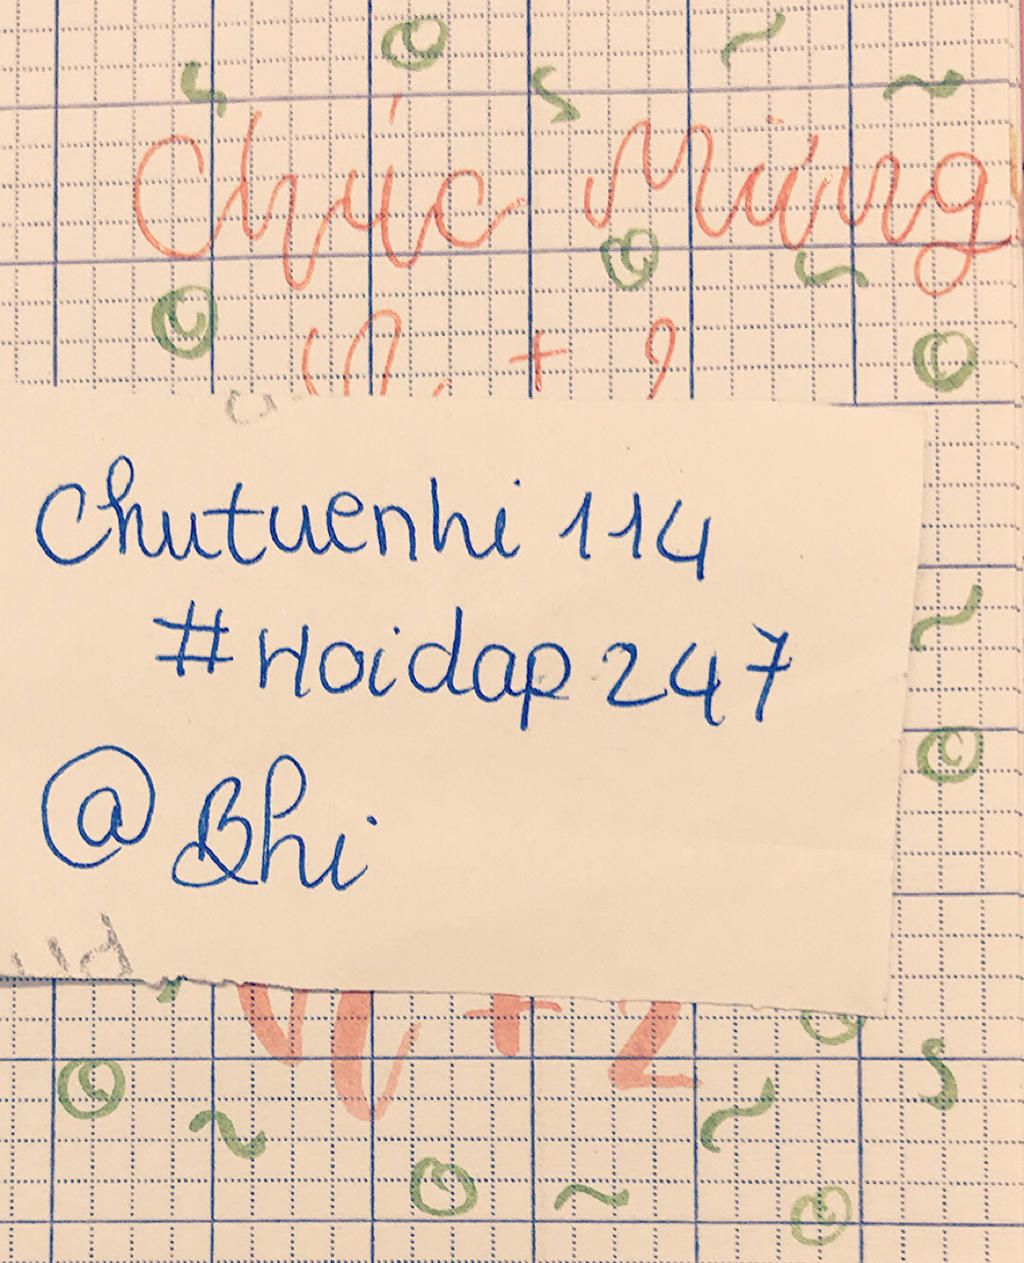 Chúc Mừng
Chutuenhi 114
#Hoidap247
@Bhi
+ 2